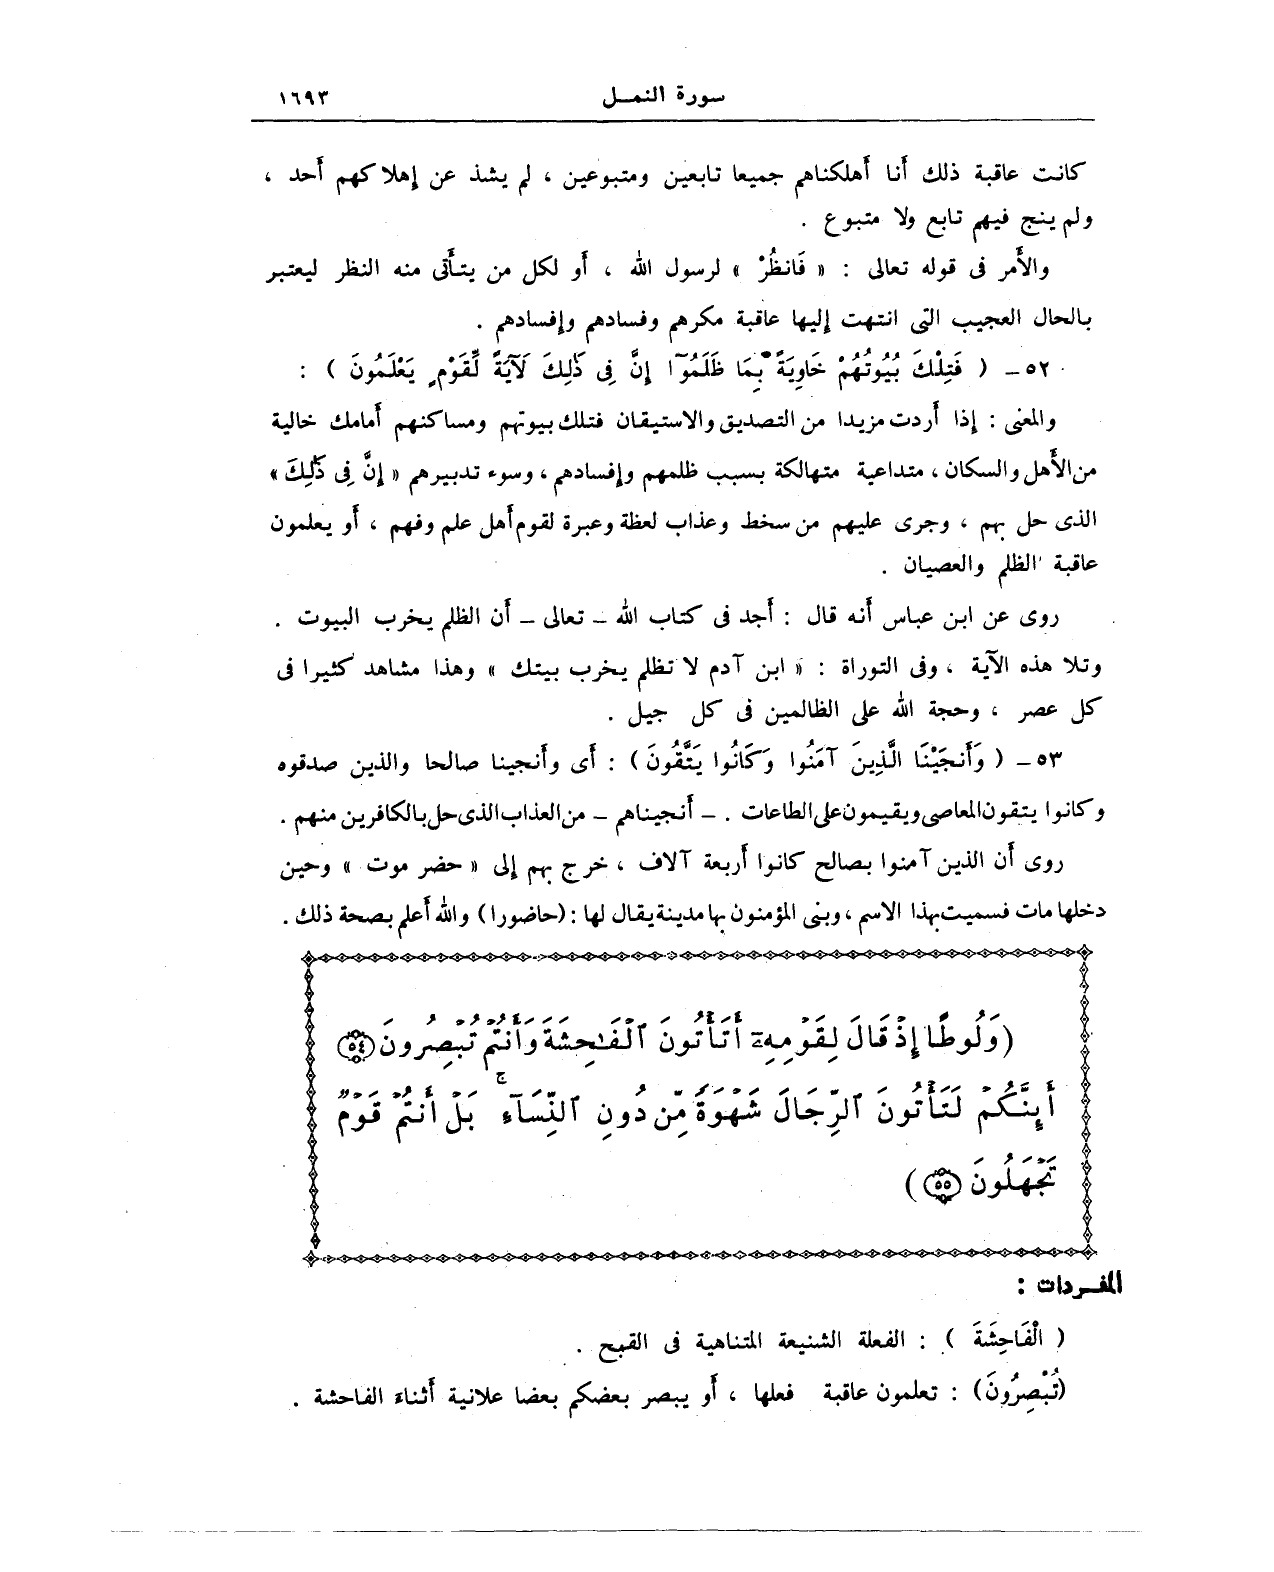 سورة النمل ١٦٩٣
كانت عاقبة ذلك أنا أهلكناهم جميعا تابعين ومتبوعين ، لم يشذ عن إهلاكهم أحد ،
ولم ينج فيهم تابع ولا متبوع .
والأمر فى قوله تعالى : « فَانظُرْ » لرسول الله ، أو لكل من يتأتى منه النظر ليعتبر
بالحال العجيب التى انتهت إليها عاقبة مكرهم وفسادهم وإفسادهم .
٥٢ ـ ( فَتِلْكَ بُيُوتُهُمْ خَاوِيَةً بِمَا ظَلَمُوٓا إِنَّ فِى ذَٰلِكَ لَآيَةً لِّقَوْمٍ يَعْلَمُونَ ) :
والمعنى : إذا أردت مزيدا من التصديق والاستيقان فتلك بيوتهم ومساكنهم أمامك خالية
من الأهل والسكان ، متداعية متهالكة بسبب ظلمهم وإفسادهم ، وسوء تدبيرهم « إِنَّ فِى ذَٰلِكَ »
الذى حل بهم ، وجرى عليهم من سخط وعذاب لعظة وعبرة لقوم أهل علم وفهم ، أو يعلمون
عاقبة الظلم والعصيان .
روى عن ابن عباس أنه قال : أجد فى كتاب الله ـ تعالى ـ أن الظلم يخرب البيوت .
وتلا هذه الآية ، وفى التوراة : « ابن آدم لا تظلم يخرب بيتك » وهذا مشاهد كثيرا فى
كل عصر ، وحجة الله على الظالمين فى كل جيل .
٥٣ ـ ( وَأَنجَيْنَا الَّذِينَ آمَنُوا وَكَانُوا يَتَّقُونَ ) : أى وأنجينا صالحا والذين صدقوه
وكانوا يتقون المعاصى ويقيمون على الطاعات . ـ أنجيناهم ـ من العذاب الذى حل بالكافرين منهم .
روى أن الذين آمنوا بصالح كانوا أربعة آلاف ، خرج بهم إلى « حضر موت » وحين
دخلها مات فسميت بهذا الاسم ، وبنى المؤمنون بها مدينة يقال لها : (حاضورا) والله أعلم بصحة ذلك .
(وَلُوطًا إِذْ قَالَ لِقَوْمِهِۦٓ أَتَأْتُونَ ٱلْفَٰحِشَةَ وَأَنتُمْ تُبْصِرُونَ ﴿٥٤﴾
أَئِنَّكُمْ لَتَأْتُونَ ٱلرِّجَالَ شَهْوَةً مِّن دُونِ ٱلنِّسَآءِ ۚ بَلْ أَنتُمْ قَوْمٌ
تَجْهَلُونَ ﴿٥٥﴾)
المفردات :
( الْفَاحِشَةَ ) : الفعلة الشنيعة المتناهية فى القبح .
(تُبْصِرُونَ) : تعلمون عاقبة فعلها ، أو يبصر بعضكم بعضا علانية أثناء الفاحشة .